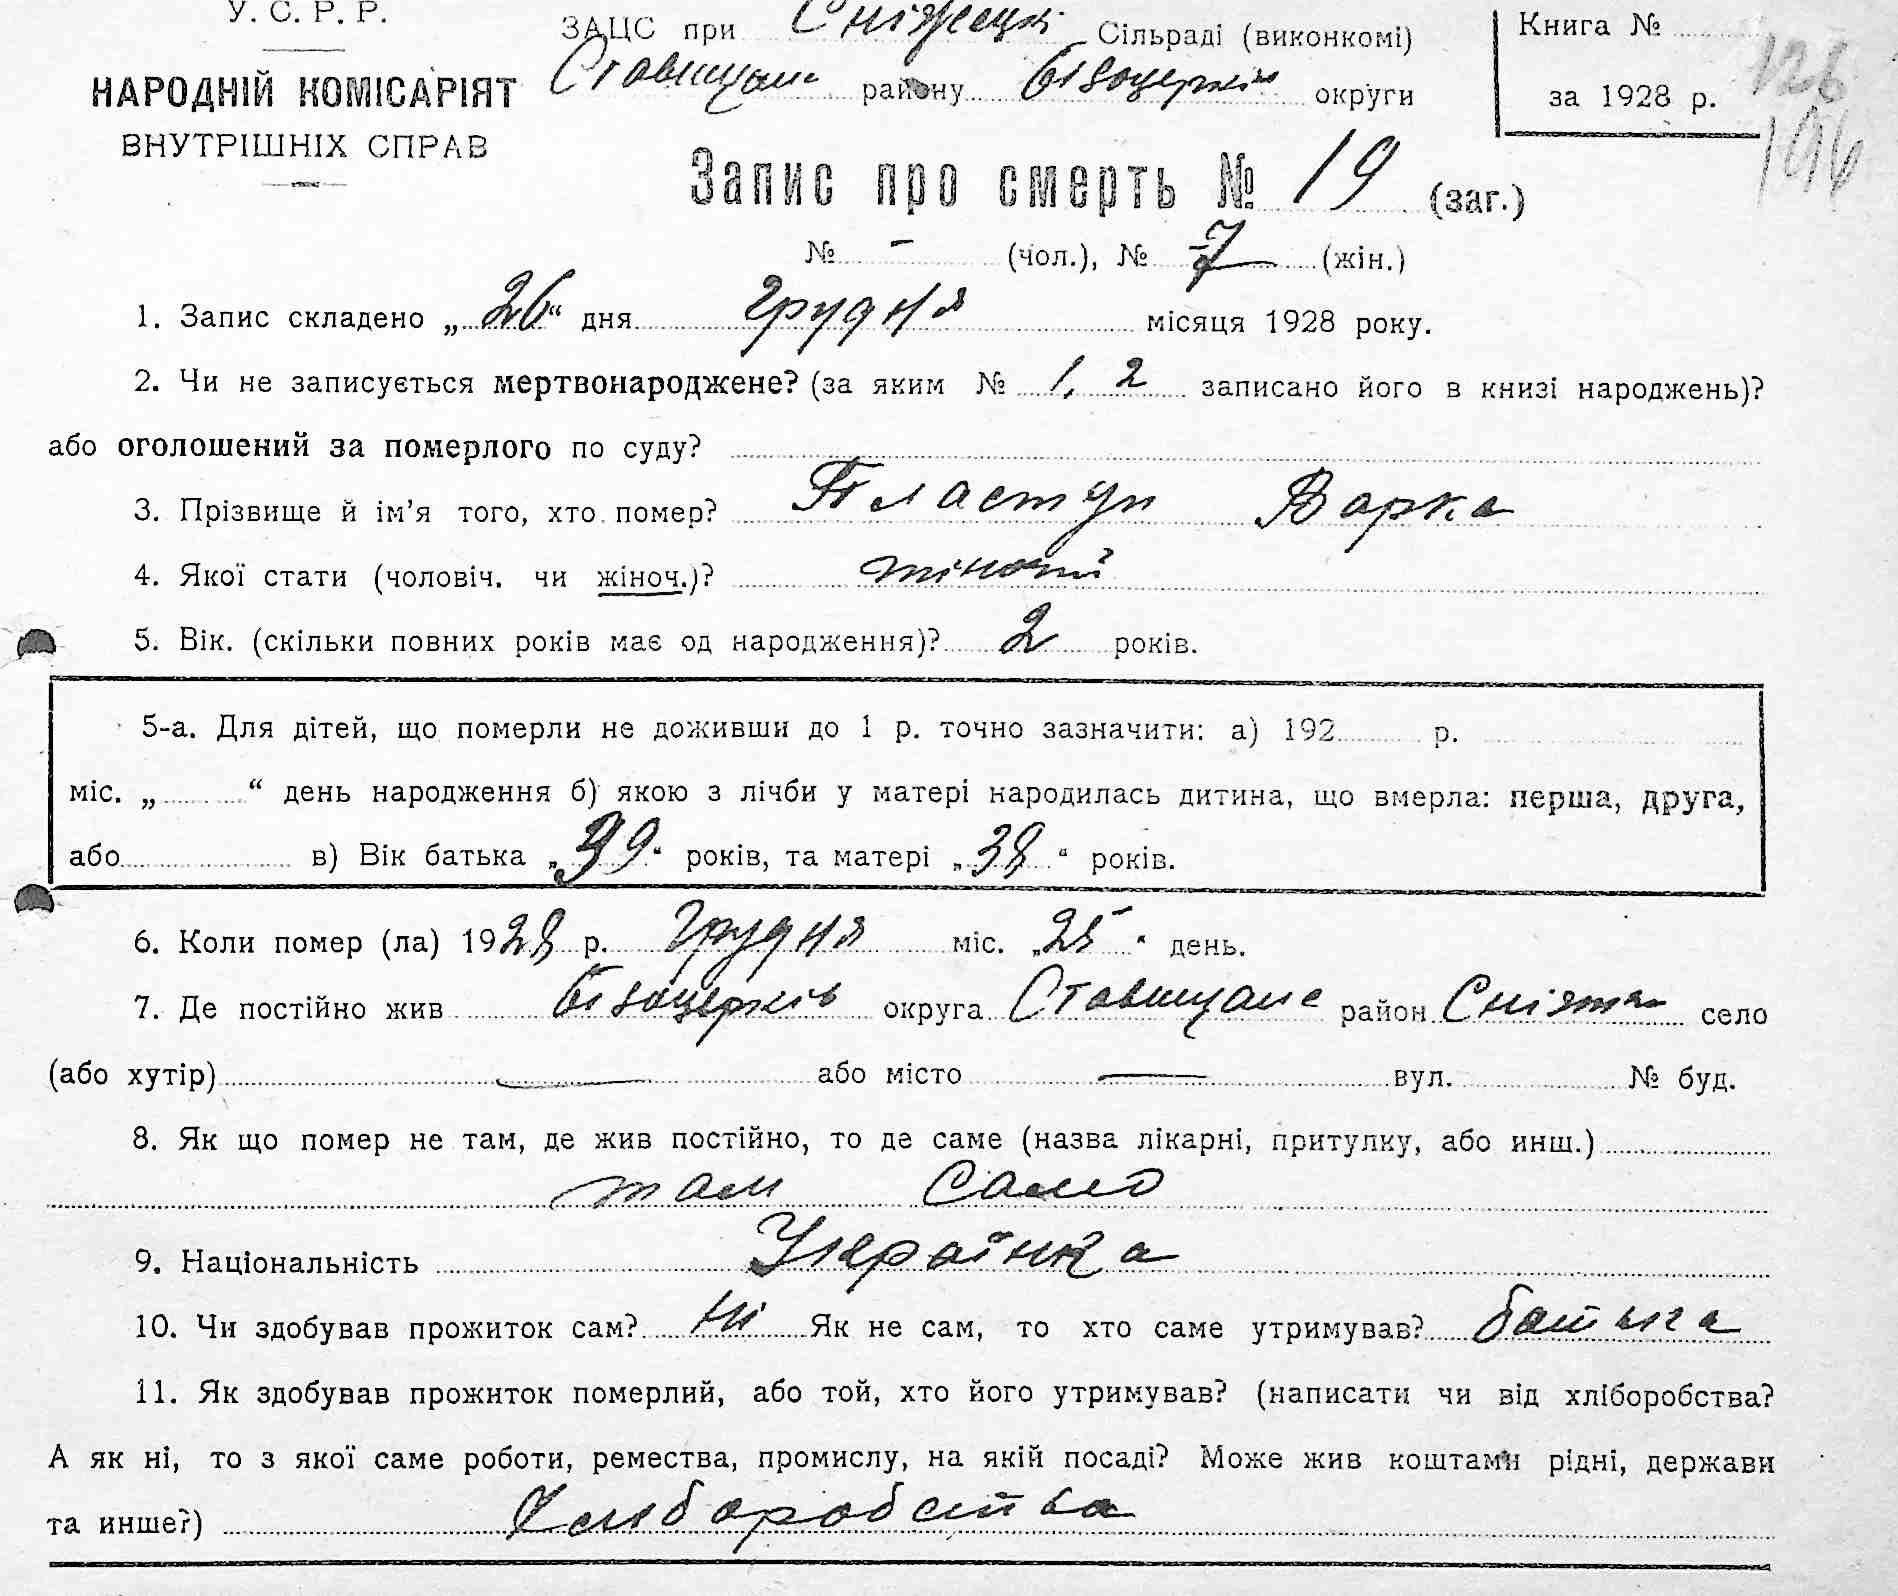 У. С. Р. Р.
НАРОДНІЙ КОМІСАРІЯТ
ВНУТРІШНІХ СПРАВ
ЗАЦС при Сніжецкі Сільраді (виконкомі)
Ставищан району Білоцерків округи
Книга №
за 1928 р.
126
Запис про смерть № 19 (заг.)
№ - (чол.), № 7 (жін.)
1. Запис складено „26“ дня грудня місяця 1928 року.
2. Чи не записується мертвонароджене? (за яким № 1, 2 записано його в книзі народжень)?
або оголошений за померлого по суду?
3. Прізвище й ім’я того, хто помер? Пластун Варка
4. Якої стати (чоловіч. чи жіноч.)? жіночий
5. Вік. (скільки повних років має од народження)? 2 років.
5-а. Для дітей, що померли не доживши до 1 р. точно зазначити: а) 192 р.
міс. „ “ день народження б) якою з лічби у матері народилась дитина, що вмерла: перша, друга,
або в) Вік батька „39“ років, та матері „38“ років.
6. Коли помер (ла) 1928 р. грудня міс. „25“ день.
7. Де постійно жив Білоцерків округа Ставищане район село
(або хутір) — або місто — вул. № буд.
8. Як що помер не там, де жив постійно, то де саме (назва лікарні, притулку, або инш.)
там само
9. Національність Українка
10. Чи здобував прожиток сам? Ні Як не сам, то хто саме утримував? батька
11. Як здобував прожиток померлий, або той, хто його утримував? (написати чи від хліборобства?
А як ні, то з якої саме роботи, ремества, промислу, на якій посаді? Може жив коштами рідні, держави
та инше?) Хліборобства